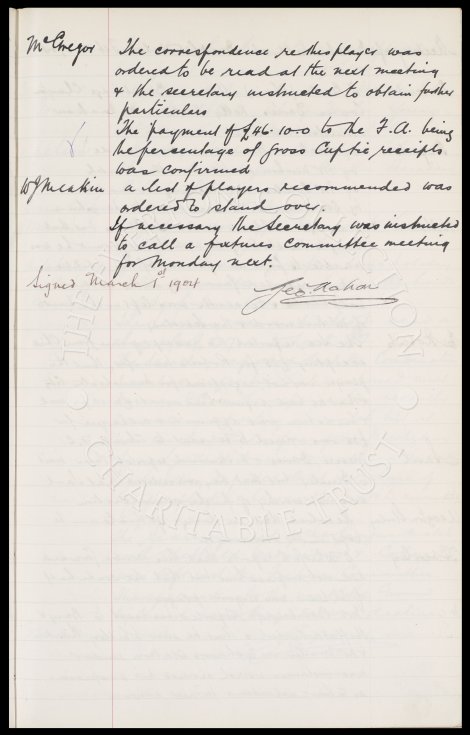 McGregor The correspondence re this player was
ordered to be read at the next meeting
& the secretary instructed to obtain further
particulars
The payment of £46.10.0 to the F.A. being
the percentage of Gross Cuptie receipts
was confirmed
W J Meakin a list of players recommended was
ordered to stand over.
If necessary the Secretary was instructed
to call a futures committee meeting
for Monday next.
Signed March 1st 1904
Geo Mahon
CHARITABLE TRUST